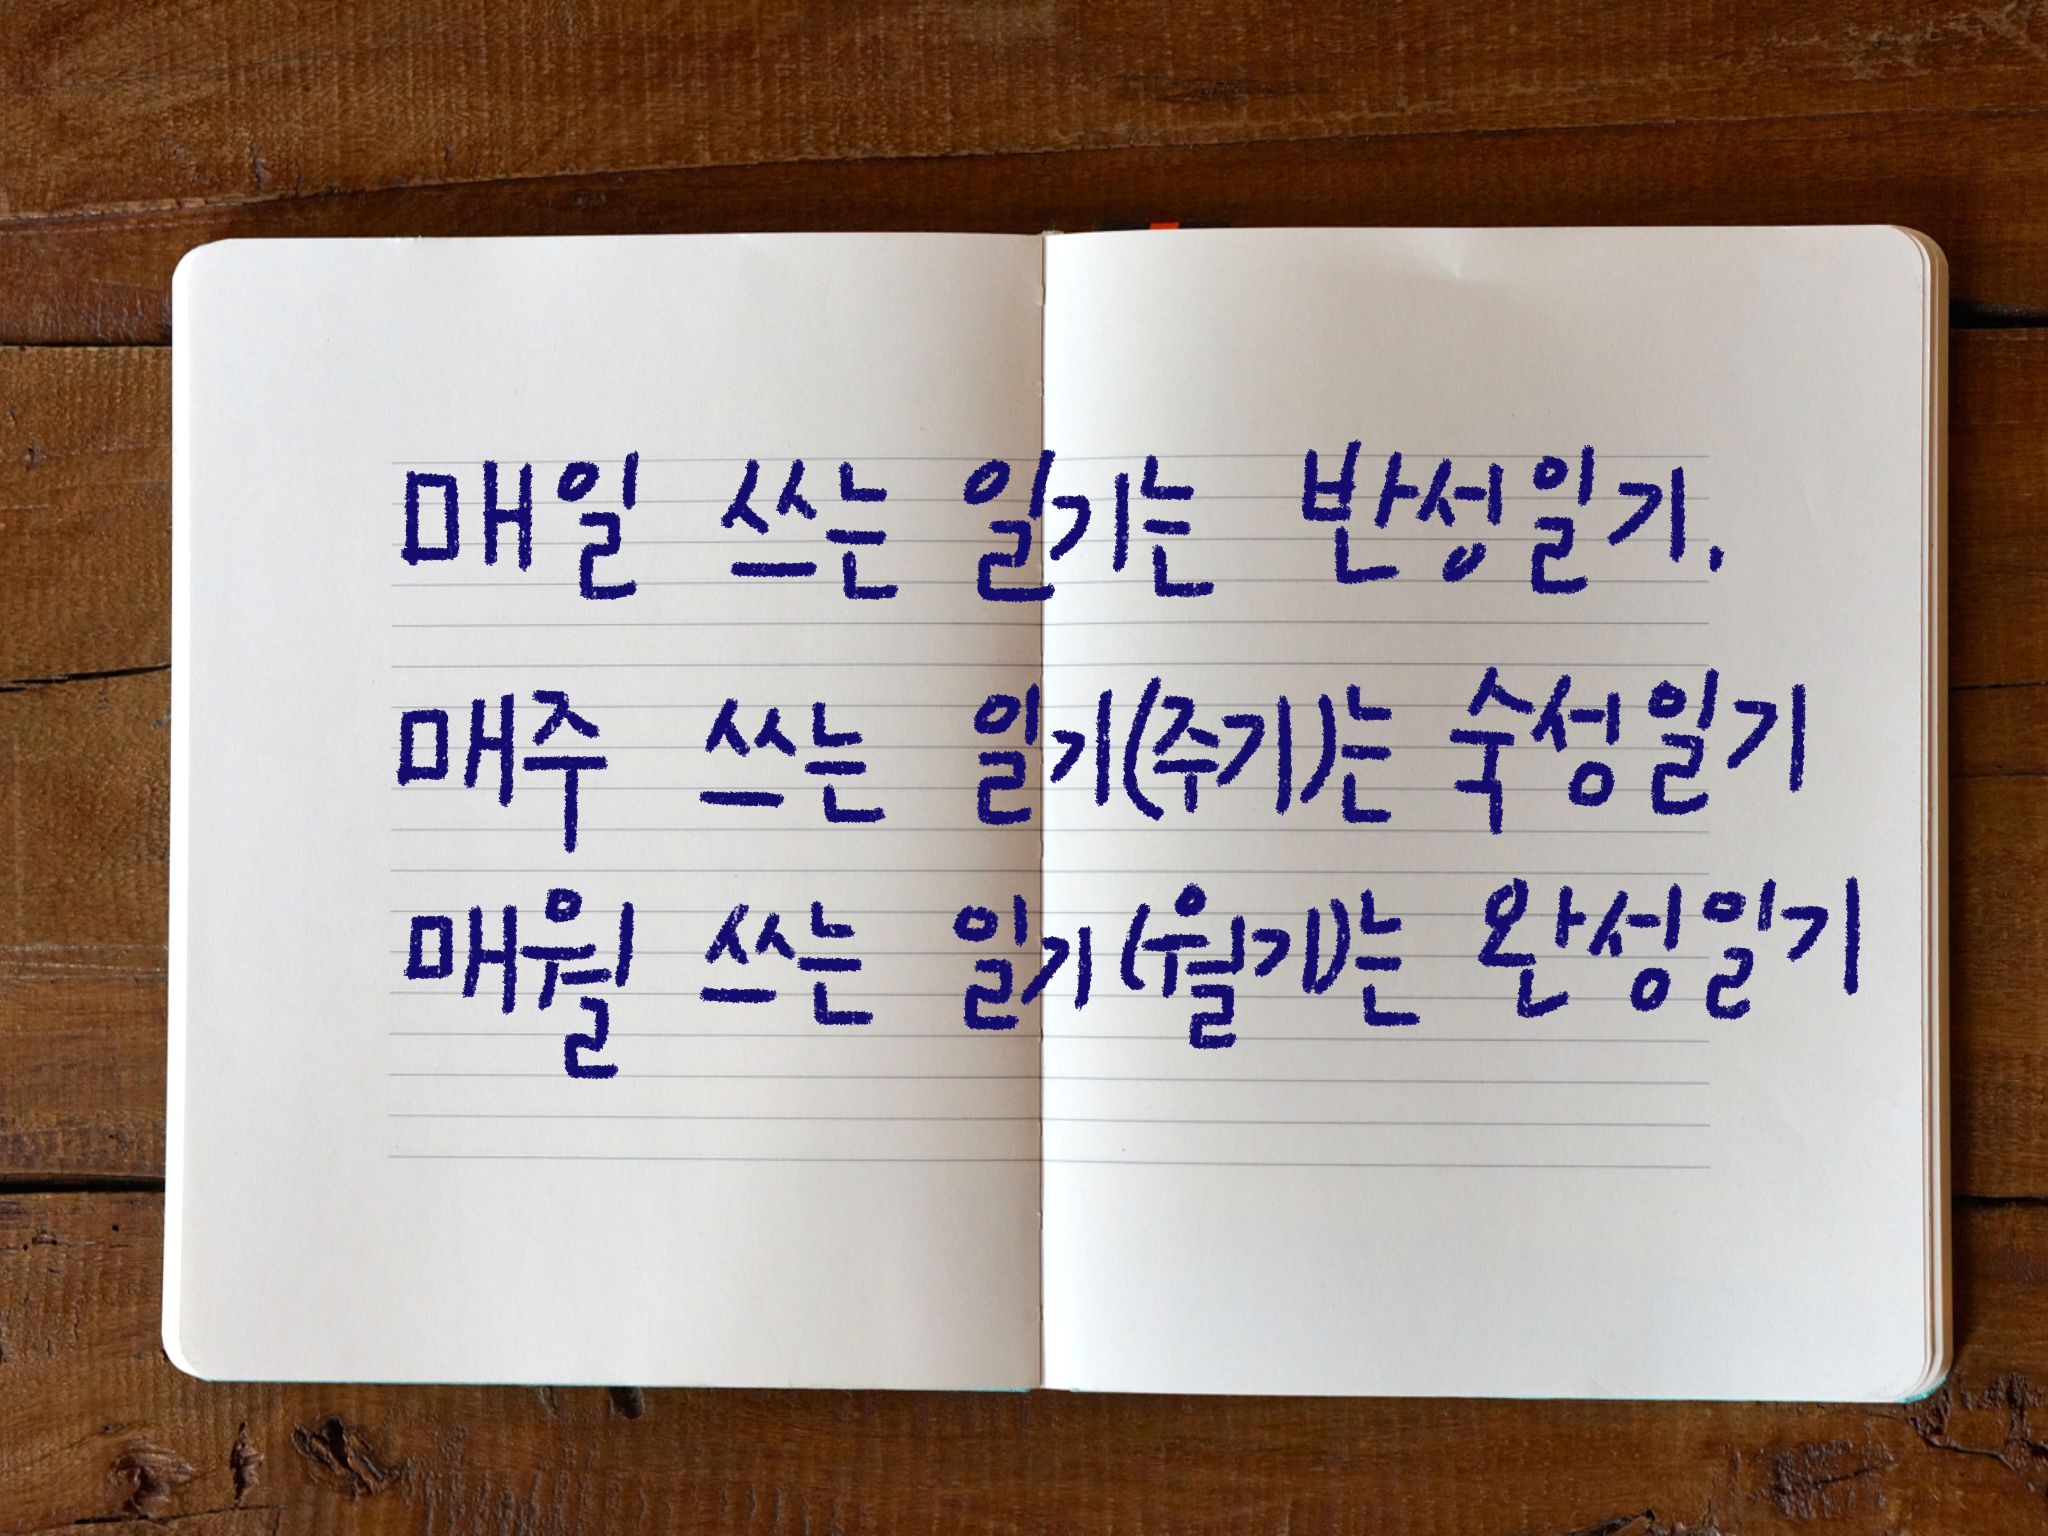 매일 쓰는 일기는 반성일기.
매주 쓰는 일기(주기)는 숙성일기
매월 쓰는 일기(월기)는 완성일기